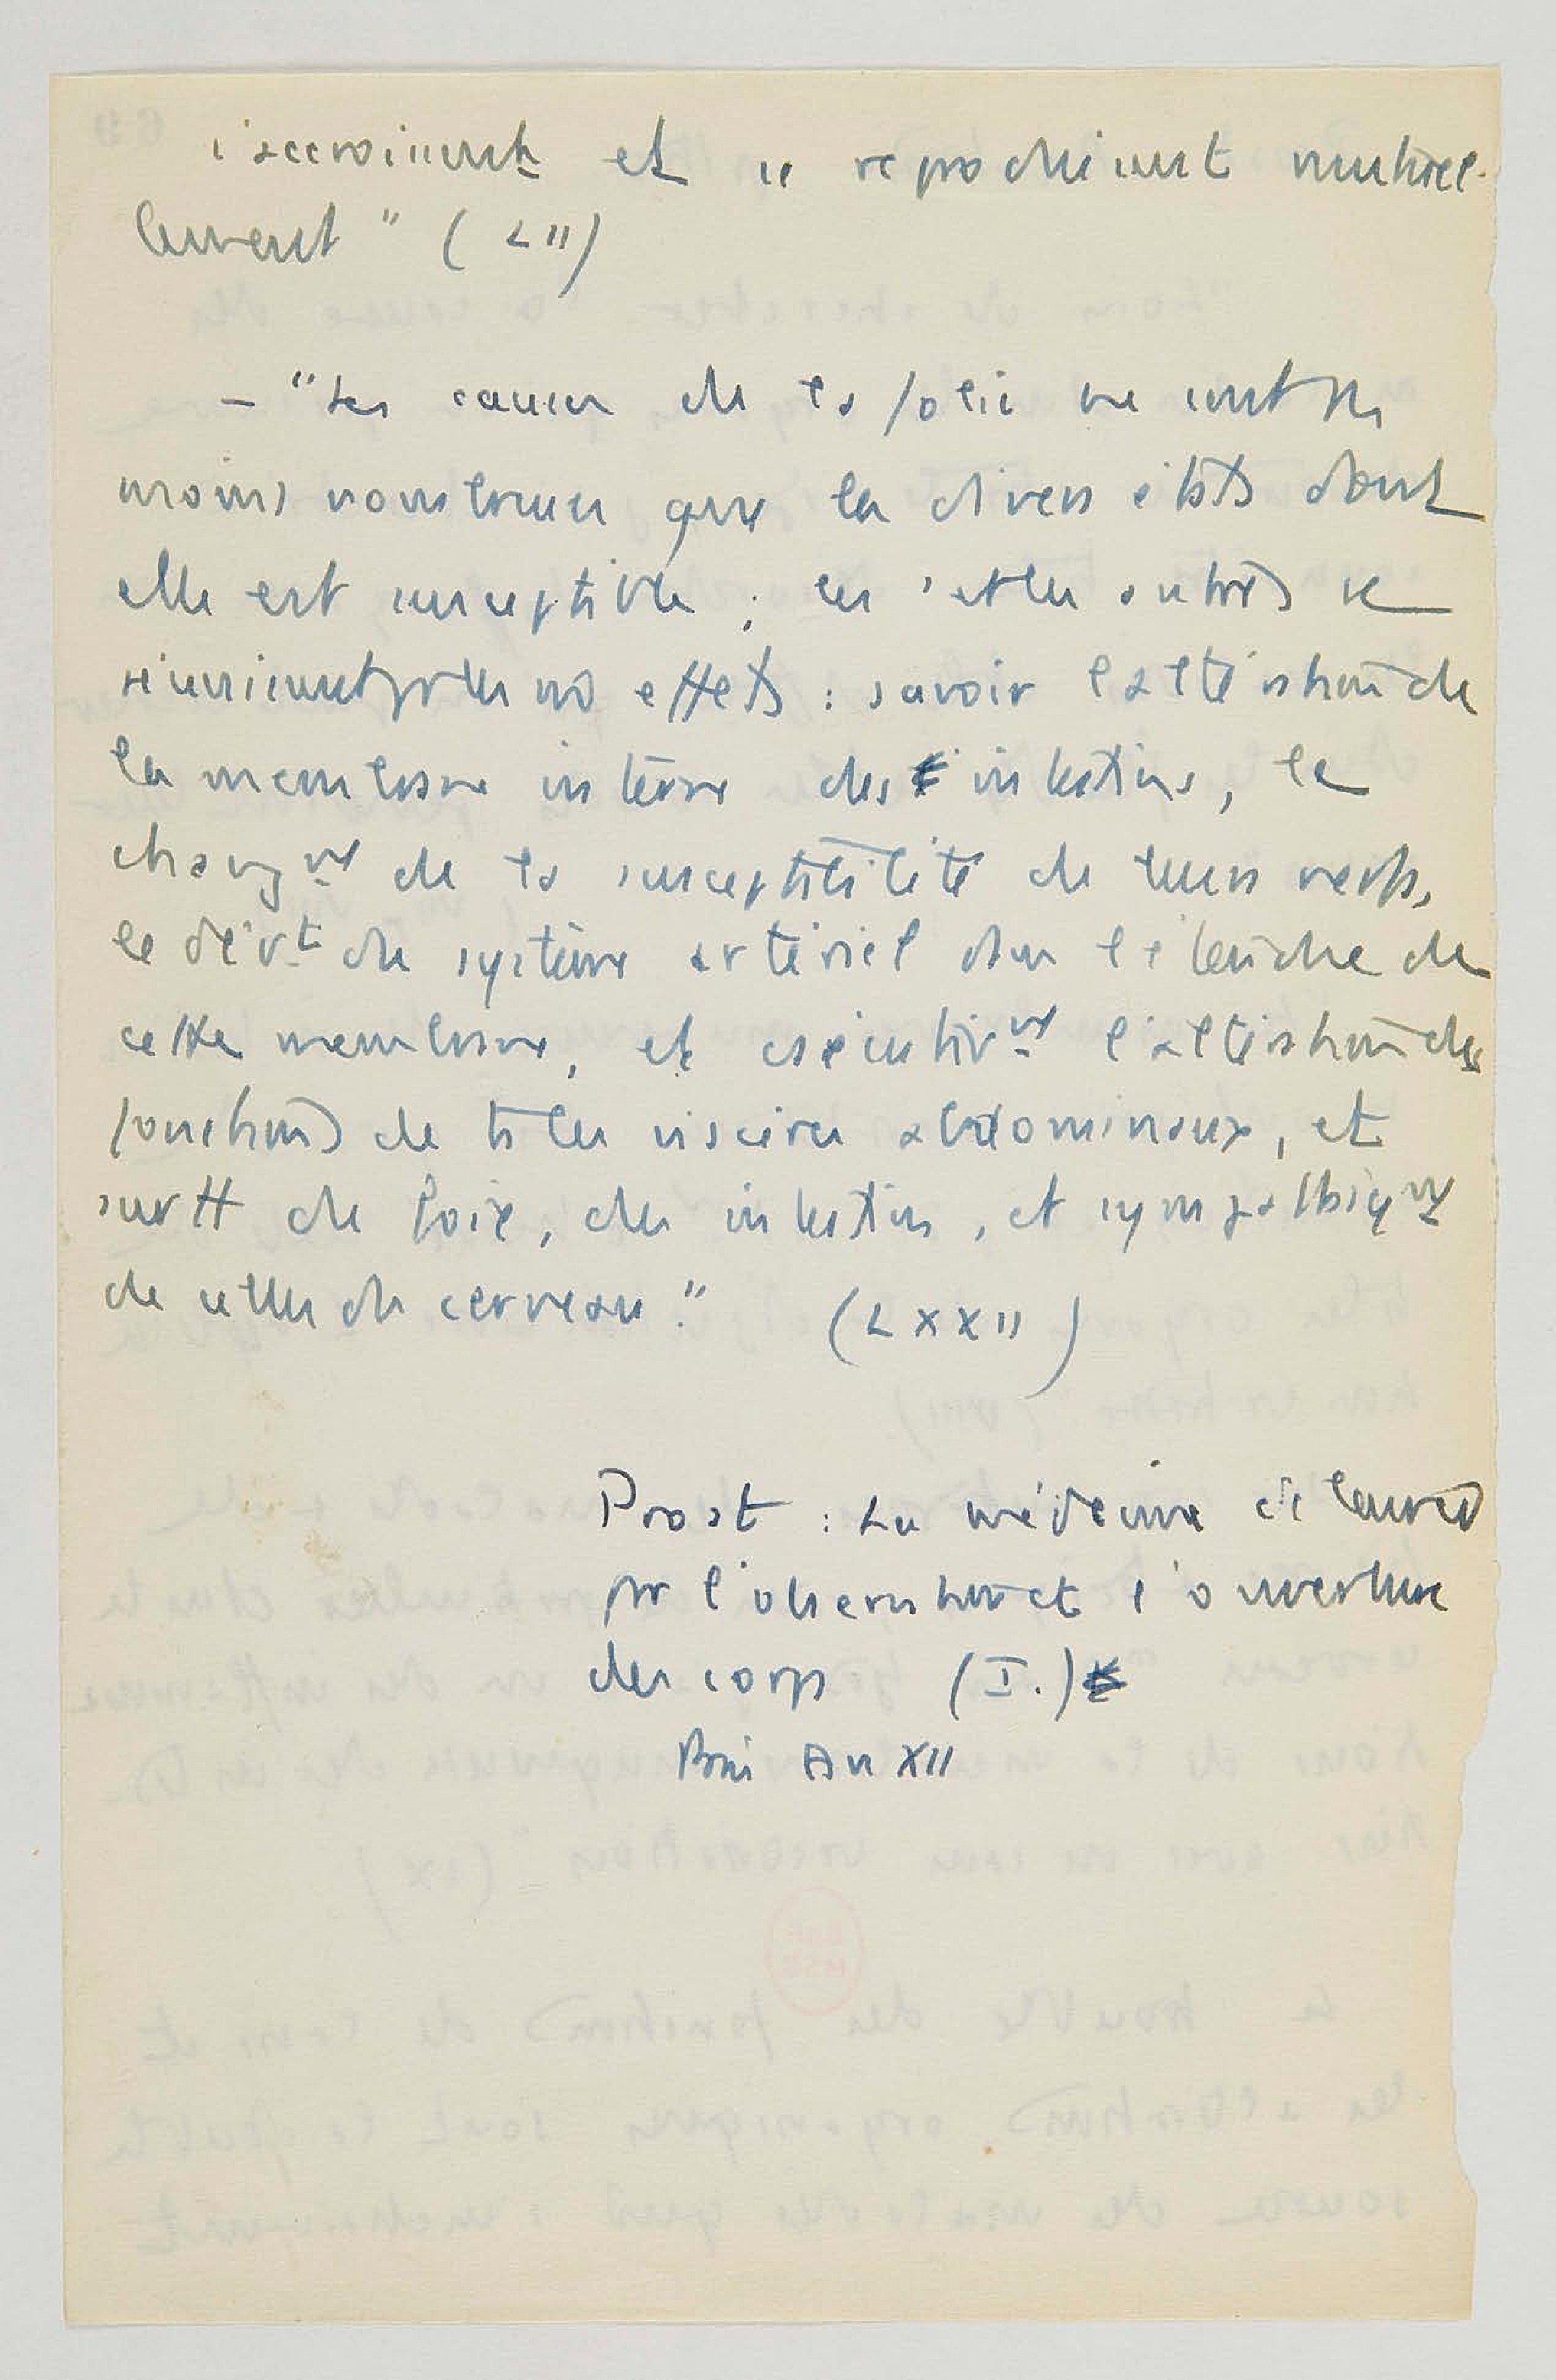 s'accroissent et se reproduisent mutuel-
lement" (LII)
– "Les causes de la folie ne sont pas
moins nombreuses que les divers états dont
elle est susceptible ; les unes et les autres se
réunissent par leurs effets : savoir l'altération de
la membrane interne des intestins, le
changmt de la susceptibilité de leurs nerfs,
le dévt du système artériel dans l'étendue de
cette membrane, et consécutivmt l'altération des
fonctions de ts les viscères abdominaux, et
surtt du foie, des intestins, et sympathiqmt
de celles du cerveau." (LXXII)
Prost : La médecine éclairée
par l'observation et l'ouverture
des corps (I.)
Paris An XII